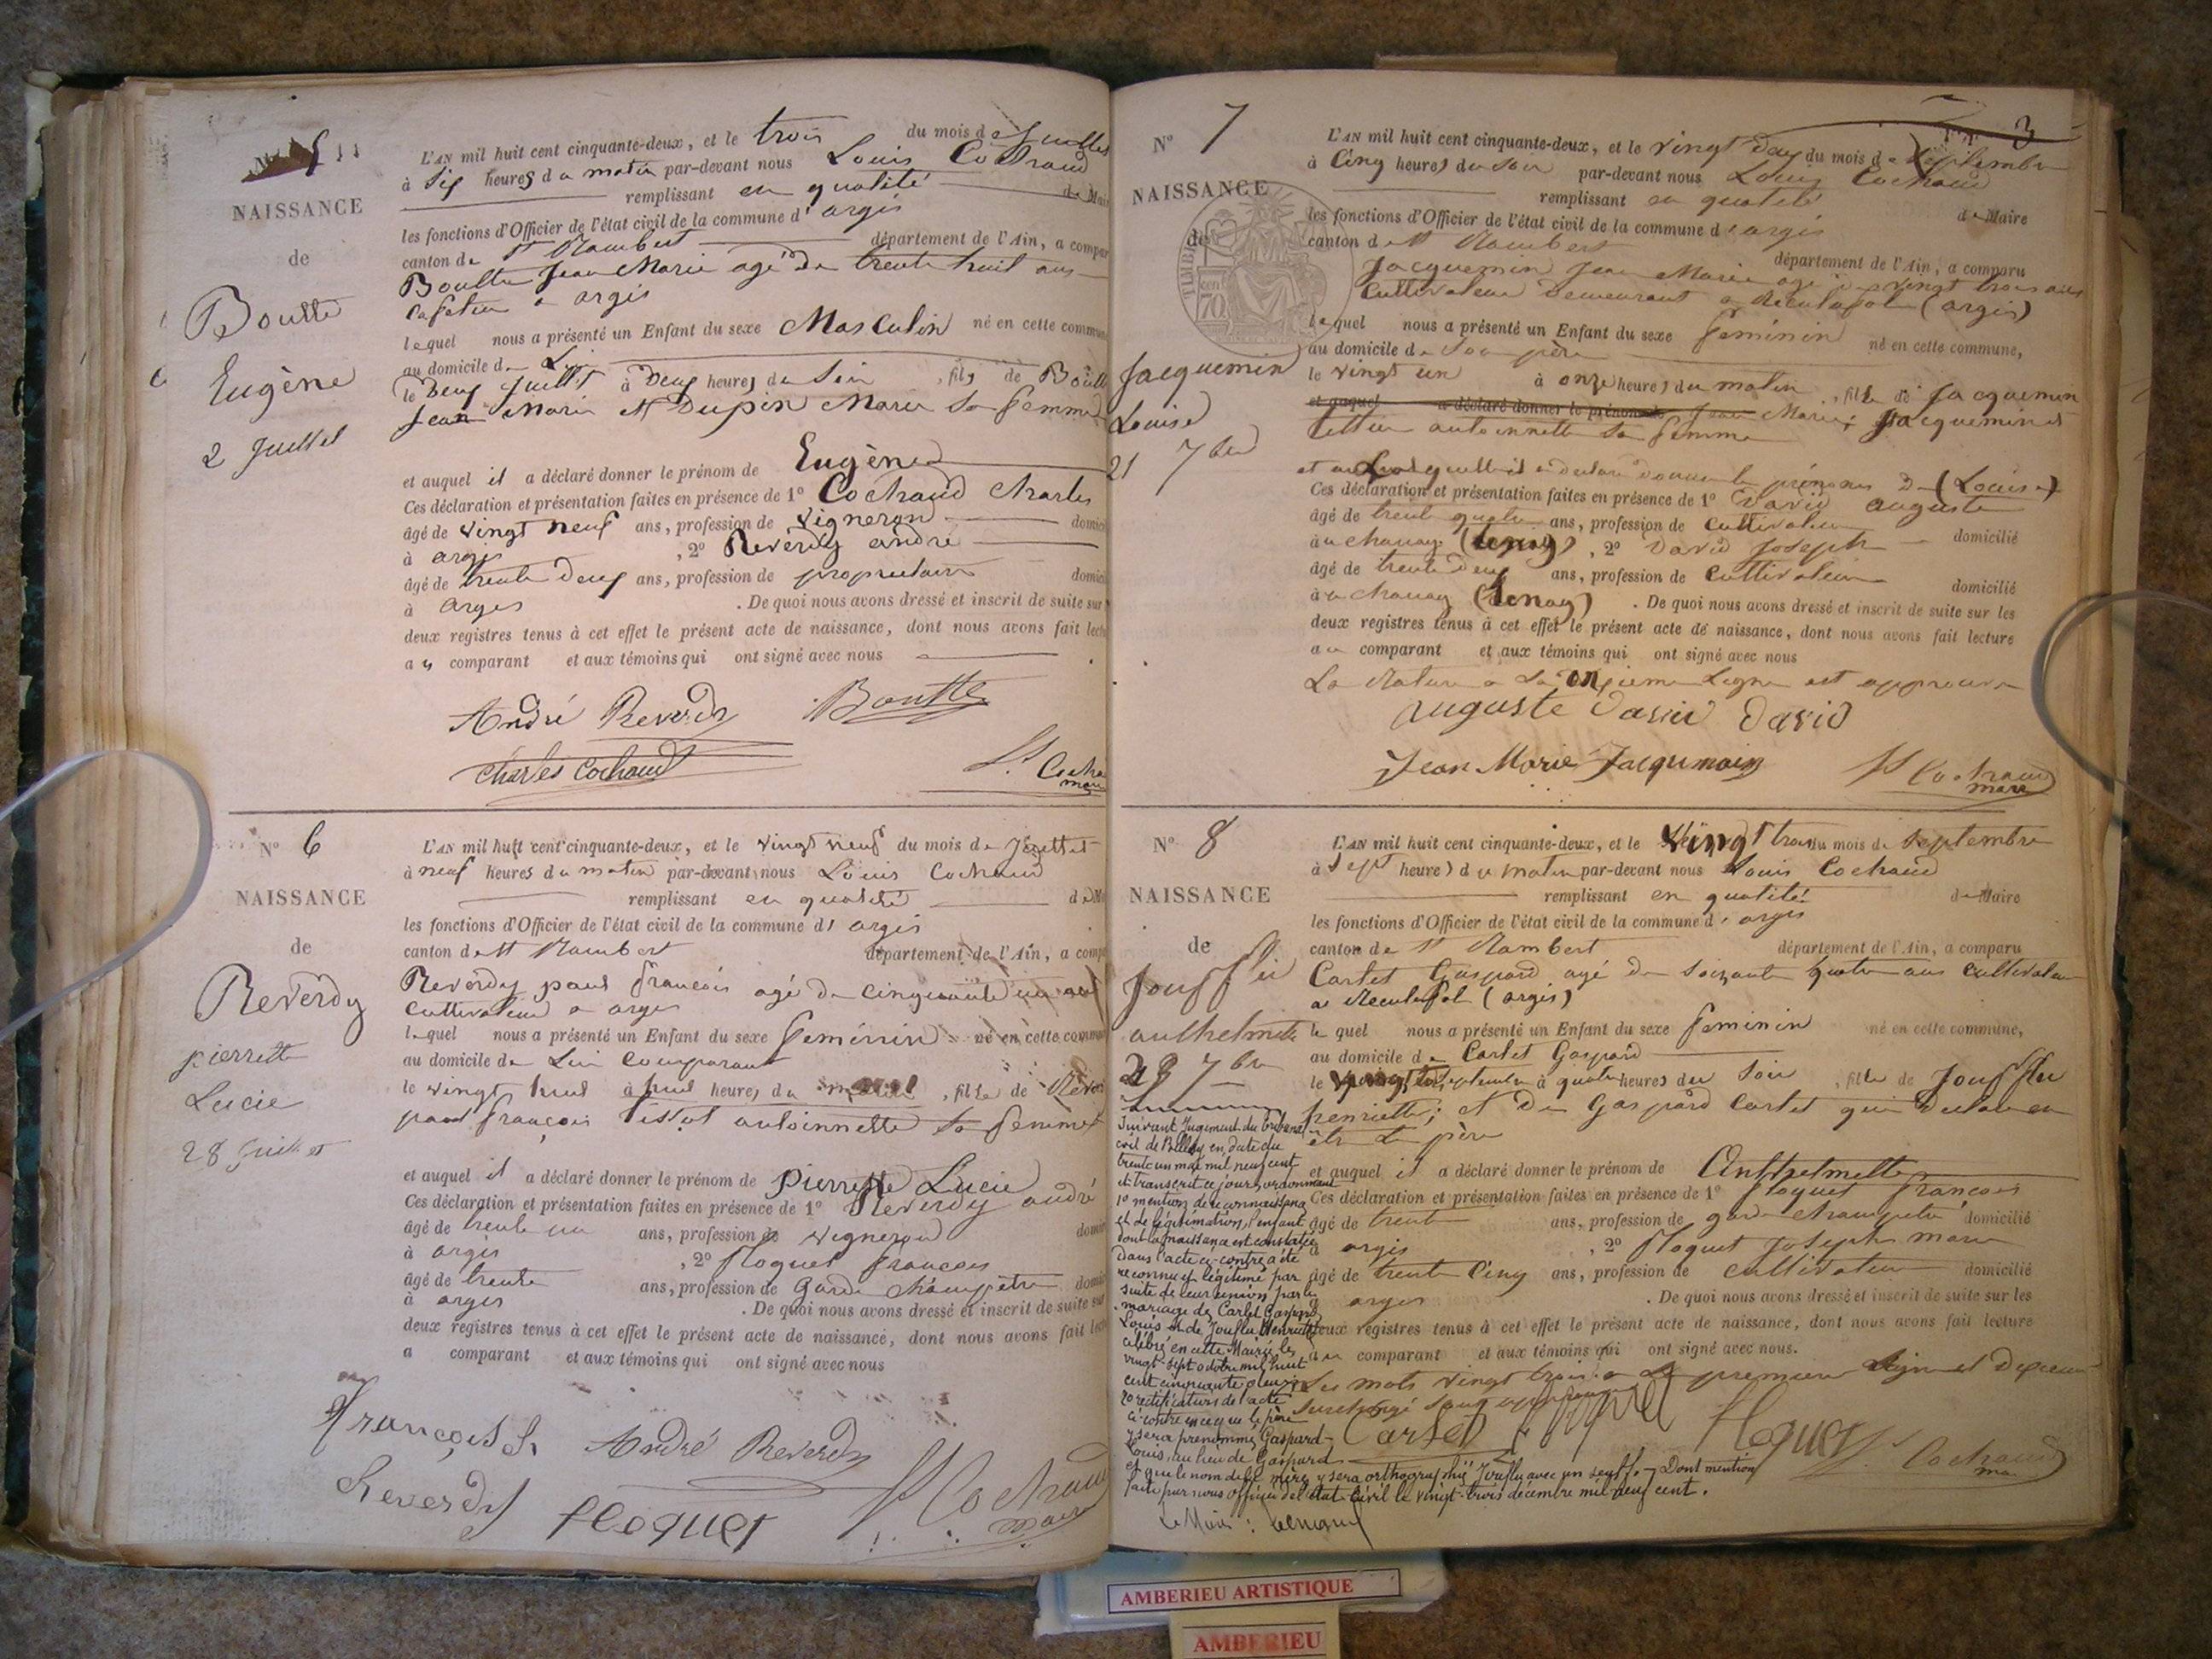 N° 5
NAISSANCE
de
Boutte
Eugène
2 Juillet
L'AN mil huit cent cinquante-deux, et le trois du mois de Juillet
à Six heures du matin par-devant nous Louis Cochaud
remplissant en qualité de Mai
les fonctions d'Officier de l'état civil de la commune d'argis
canton de St Rambert département de l'Ain, a compar
Boutte Jean Marie agé de trente huit ans
Cafetier a argis
lequel nous a présenté un Enfant du sexe Masculin né en cette commun
au domicile de Lui
le Deux Juillet à Deux heures du Soir, fils de Boutt
Jean Marie et Dupin Marie Sa femme
et auquel il a déclaré donner le prénom de Eugène
Ces déclaration et présentation faites en présence de 1° Cochaud Charles
âgé de vingt neuf ans, profession de vigneron domici
à argis, 2° Reverdy andré
âgé de trente Deux ans, profession de propriétaire domici
à argis. De quoi nous avons dressé et inscrit de suite sur
deux registres tenus à cet effet le présent acte de naissance, dont nous avons fait lectu
au comparant et aux témoins qui ont signé avec nous
André Reverdy Boutte
Charles Cochaud
Ls Cocha
maire
N° 6
NAISSANCE
de
Reverdy
pierrette
Lucie
28 Juillet
L'AN mil huit cent cinquante-deux, et le vingt neuf du mois de Juillet
à neuf heures du matin par-devant nous Louis Cochaud
remplissant en qualité de Ma
les fonctions d'Officier de l'état civil de la commune d'argis
canton de St Rambert département de l'Ain, a comp
Reverdy paul françois agé de cinquante un ans
Cultivateur a argis
lequel nous a présenté un Enfant du sexe féminin né en cette commun
au domicile de Lui Comparant
le vingt huit à huit heures du, fille de Rever
paul françois Tissot antoinnette Sa femme
et auquel il a déclaré donner le prénom de pierrette Lucie
Ces déclaration et présentation faites en présence de 1° Reverdy andré
âgé de trente un ans, profession de vigneron domici
à argis, 2° floquet françois
âgé de trente ans, profession de garde champêtre domici
à argis. De quoi nous avons dressé et inscrit de suite sur
deux registres tenus à cet effet le présent acte de naissance, dont nous avons fait lectu
a comparant et aux témoins qui ont signé avec nous
François André Reverdy
Reverdy floquet Ls Cochaud
maire
3
N° 7
NAISSANCE
de
TIMBRE
70 cent
Jacquemin
Louise
21 7bre
L'AN mil huit cent cinquante-deux, et le vingt Deux du mois de Septembre
à Cinq heures du Soir par-devant nous Louis Cochaud
remplissant en qualité de Maire
les fonctions d'Officier de l'état civil de la commune d'argis
canton de St Rambert département de l'Ain, a comparu
Jacquemin Jean Marie agé de vingt trois ans
Cultivateur Demeurant a Reculafol (argis)
lequel nous a présenté un Enfant du sexe féminin né en cette commune,
au domicile de Son père
le vingt un à onze heures du matin, fille de Jacquemin
et auquel a déclaré donner le prénom de Jean Marie; Jacquemin et
antoinnette Sa femme
et a laquelle il a declaré donner le prénoms De (Louise)
Ces déclaration et présentation faites en présence de 1° David auguste
âgé de trente quatre ans, profession de Cultivateur domicilié
à (tenay), 2° David Joseph
âgé de trente Deux ans, profession de Cultivateur domicilié
à (tenay). De quoi nous avons dressé et inscrit de suite sur les
deux registres tenus à cet effet le présent acte de naissance, dont nous avons fait lecture
au comparant et aux témoins qui ont signé avec nous
La Rature a La onzieme Ligne est approuvé
auguste David David
Jean Marie Jacqumain Ls Cochaud
maire
N° 8
NAISSANCE
de
Joufflu
anthelmette
23 7bre
L'AN mil huit cent cinquante-deux, et le vingt trois du mois de Septembre
à Sept heures du matin par-devant nous Louis Cochaud
remplissant en qualité de Maire
les fonctions d'Officier de l'état civil de la commune d'argis
canton de St Rambert département de l'Ain, a comparu
Carlet Gaspard agé de Soixante quatre ans cultivateur
a Reculafol (argis)
lequel nous a présenté un Enfant du sexe féminin né en cette commune,
au domicile de Carlet Gaspard
le Septembre à quatre heures du Soir, fille de Joufflu
henriette; et De Gaspard Carlet qui Déclare en
être Le père
et auquel il a déclaré donner le prénom de Anthelmette
Ces déclaration et présentation faites en présence de 1° floquet françois
âgé de trente ans, profession de garde champêtre domicilié
à argis, 2° floquet Joseph marie
âgé de trente Cinq ans, profession de cultivateur domicilié
à argis. De quoi nous avons dressé et inscrit de suite sur les
deux registres tenus à cet effet le présent acte de naissance, dont nous avons fait lecture
au comparant et aux témoins qui ont signé avec nous.
Les mots vingt trois a La premiere Ligne et
Surchargé Sont
Carlet floquet floquet Ls Cochaud
maire
Suivant Jugement du tribunal
civil de Belley en date du
trente un mai mil neuf cent
et transcrit ce jour, ordonnant
1° mention de reconnaissance
et de légitimation, l'enfant
dont la naissance est constatée
dans l'acte ci-contre a été
reconnu et légitimé par
suite de leur union par le
mariage de Carlet Gaspard
Louis et de Jouflu Henriette
célébré en cette Mairie le
vingt-sept octobre mil huit
cent cinquante deux;
2° rectification de l'acte
ci-contre en ce que le père
y sera prénommé Gaspard-
Louis, au lieu de Gaspard
et que le nom de la mère y sera orthographié Jouflu avec un seul f. Dont mention
faite par nous officier de l'état civil le vingt-trois décembre mil neuf cent.
Le Maire:
AMBERIEU ARTISTIQUE
AMBERIEU